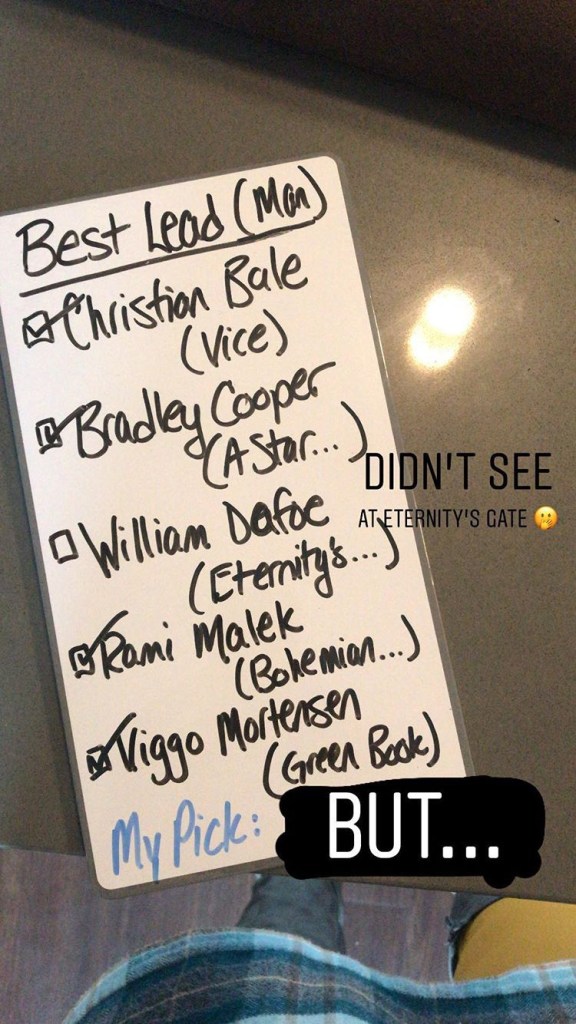 Best Lead (Man)
Christian Bale
(Vice)
Bradley Cooper
(A Star...)
DIDN'T SEE
AT ETERNITY'S GATE 🤭
William Dafoe
(Eternity's...)
Rami Malek
(Bohemian...)
Viggo Mortensen
(Green Book)
My Pick:
BUT...